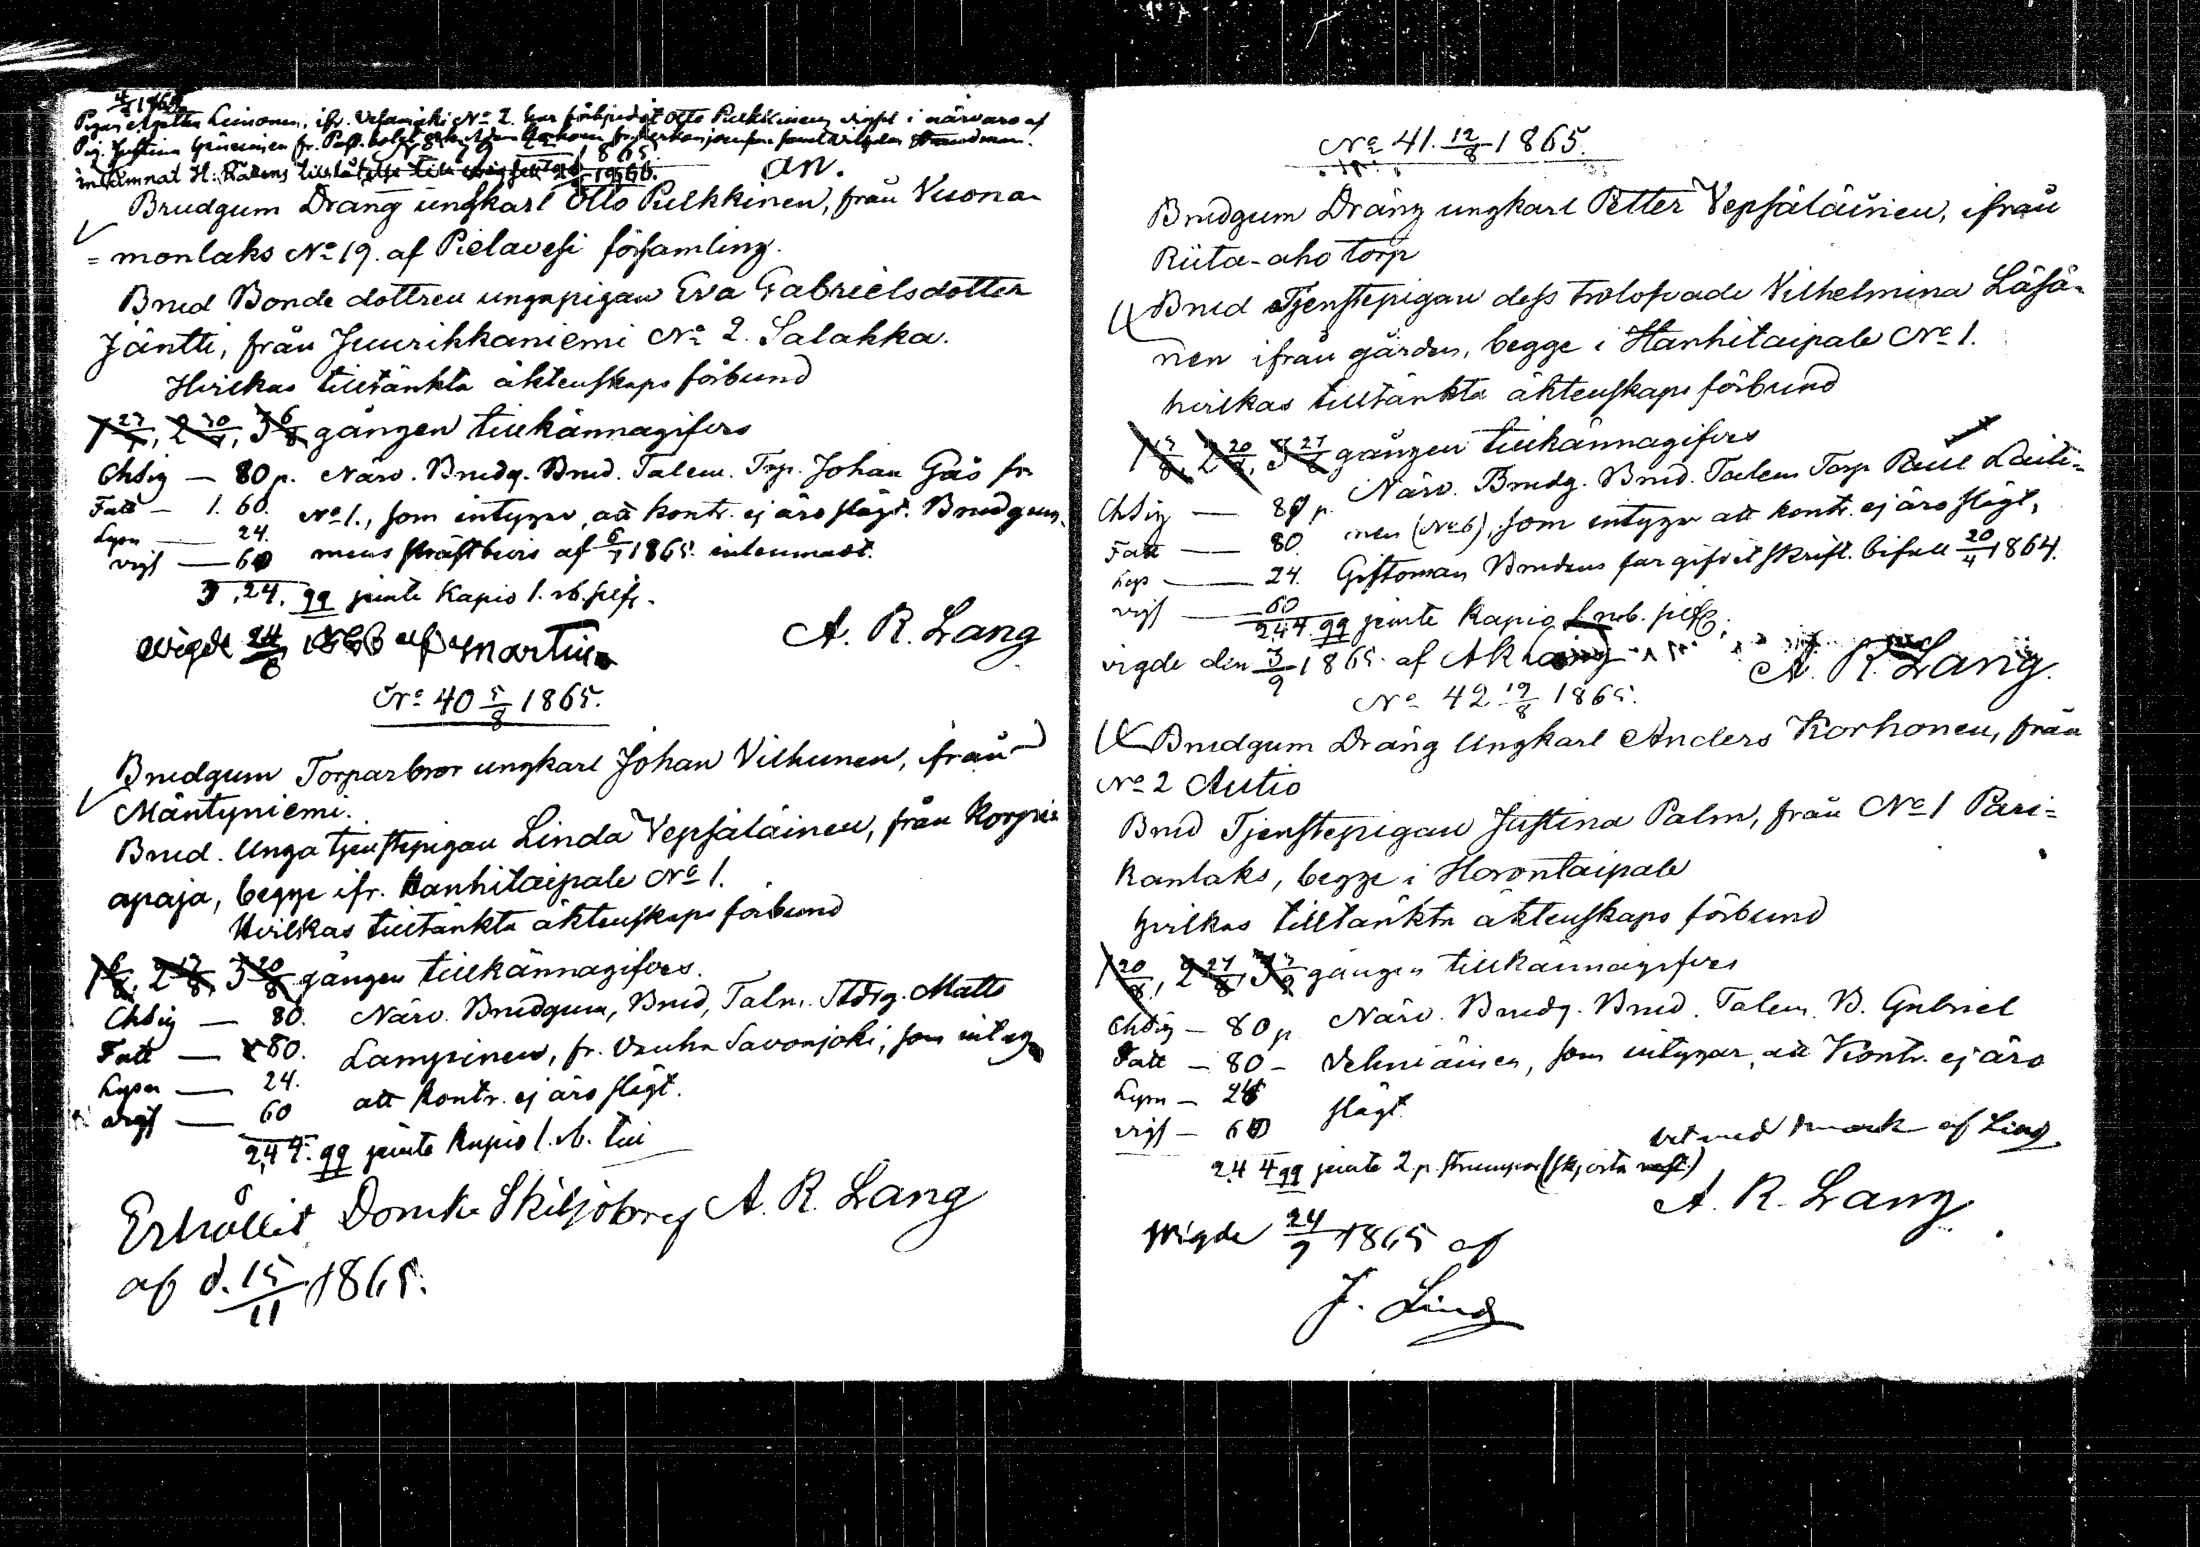 Pigan Agatha Leinonen, ifr. Vesanjoki No 2. har förbjudit Otto Pulkkinens vigsel i närvaro af
Pig. Justina
inlemnat H: Rättens tillåtelse till
an.
Brudgum Dräng ungkarl Otto Pulkkinen, från Vuona-
=monlaks No 19. af Pielavesi församling.
Brud Bonde dottren unga pigan Eva Gabrielsdotter
Jäntti, från Juurikkaniemi No 2. Salahka.
Hvilkas tilltänkta äktenskaps förbund
1 27/7, 2 30/7, 3 6/8 gången tillkännagifves
Chtig — 80 p. Närv. Brudg. Brud. Talem. Trp. Johan Gås fr.
Fatt — 1. 60. No 1., som intygar, att kontr. ej äro slägt. Brudgum-
Lysn — 24. mens skriftbevis af 6/7 1865. inlemnadt.
vigs — 60
3,24. qq jemte Kapio 1. rb. silfr.
A. R. Lang
Wigde 24/6 1866 af Martin
No 40 5/8 1865.
Brudgum Torparbror ungkarl Johan Vilhunen, ifrån
Mäntyniemi.
Brud. Unga tjenstepigan Linda Vepsäläinen, från Korpi-
apaja, begge ifr. Hanhitaipale No 1.
Hvilkas tilltänkta äktenskaps förbund
1 6/8, 2 13/8, 3 20/8 gången tillkännagifves.
Chtig — 80. Närv. Brudgum, Brud, Talm. Matts
Fatt — 80. Lampinen, fr. Savonjoki, som intyg
Lysn — 24. att kontr. ej äro slägt.
vigs — 60
2,44. qq jemte Kapio 1. rb.
Erhållit Domk. Skiljobref A. R. Lang
af d. 15/11 1865.
No 41. 12/8 1865.
Brudgum Dräng ungkarl Petter Vepsäläinen, ifrån
Riita-aho torp
Brud Tjenstepigan dess trolofvade Vilhelmina Läsä-
nen ifrån gården, begge i Hanhitaipale No 1.
hvilkas tilltänkta äktenskaps förbund
1 13/8, 2 20/8, 3 27/8 gången tillkännagifves
Chtig — 80 p. Närv. Brudg. Brud. Talem Torp Påul Laiti-
Fatt — 80 nen (No 6), som intygar att kontr. ej äro slägt,
Lys — 24. Giftoman Brudens far gifvit skrift. bifall 20/4 1864.
vigs — 60
2,44 qq jemte Kapio 1 rub. silfr.
vigde den 3/9 1865. af A R Lang
A. R. Lang.
No 42 19/8 1865.
Brudgum Dräng Ungkarl Anders Korhonen, från
No 2 Autio
Brud Tjenstepigan Justina Palm, från No 1 Pari=
kanlaks, begge i Horontaipale
hvilkas tilltänkta äktenskaps förbund
1 20/8, 2 27/8, 3 3/9 gången tillkännagifves
Chtig — 80 p Närv. Brudg. Brud. Talem. B. Gabriel
Fatt — 80 — Vehniäinen, som intygar, att Kontr. ej äro
Lysn — 24 slägt.
vigs — 60
2,44 qq jemte 2 p. strumpor (skjorta)
A. R. Lang
Wigde 24/9 1865 af
J. Lind